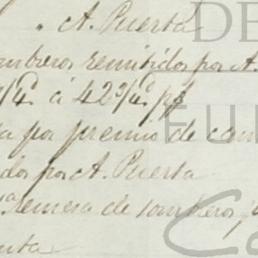 A. Puerta
mbreros remitidos por A.
á 42 3/6
ta por premio de cam
dos por A. Puerta
remesa de sombreros, y
enta
DE
FU
Ca